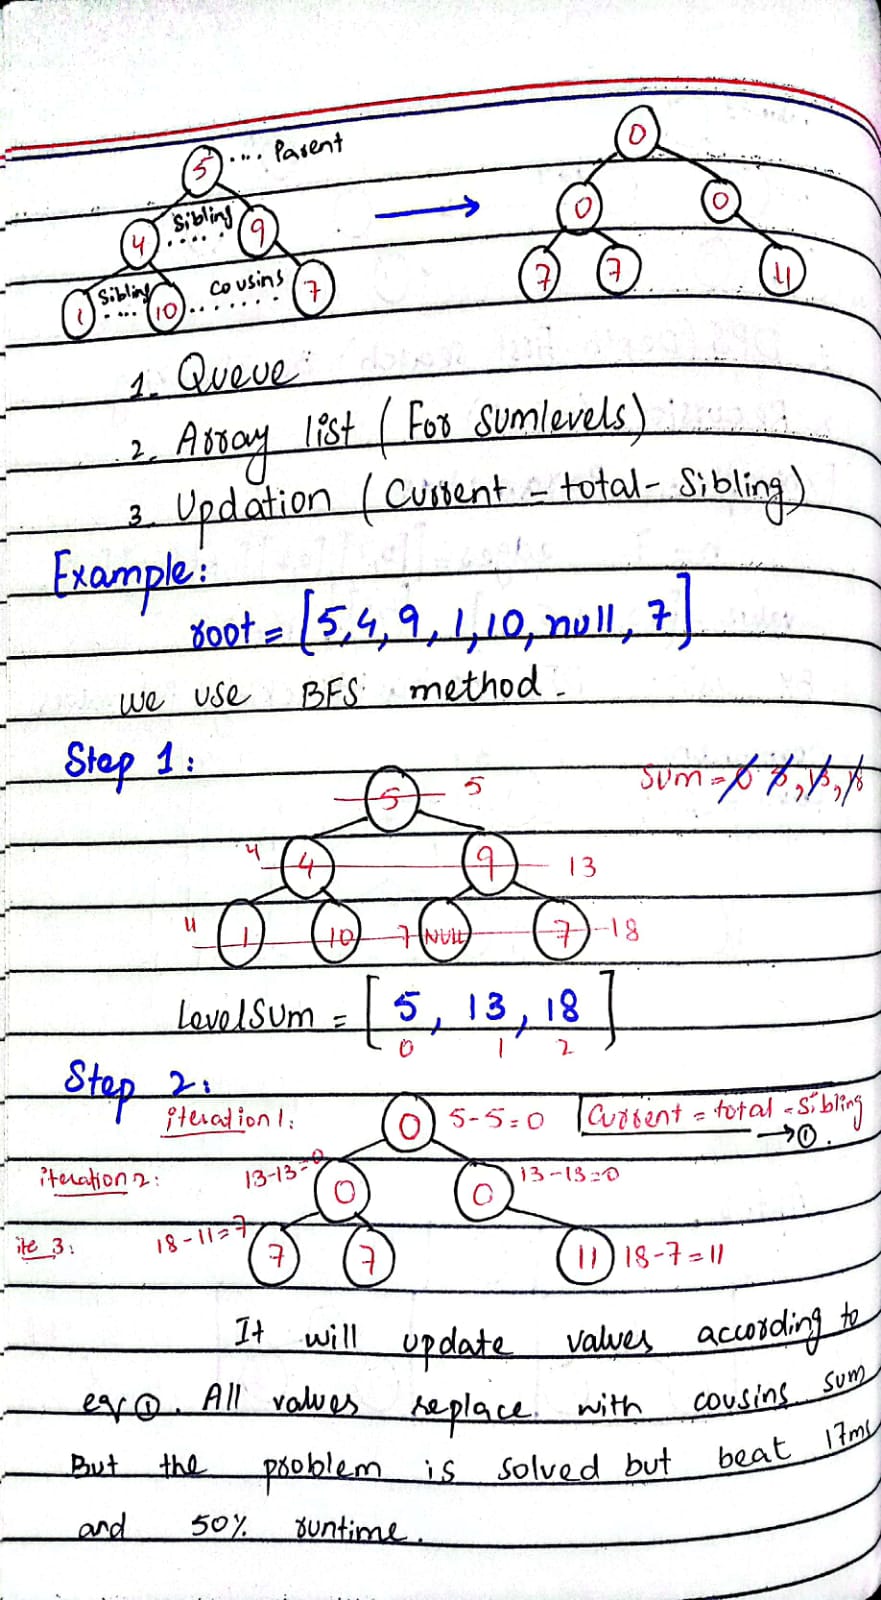 5 .... Parent
0
4 Sibling ..... 9
0 0
1 Sibling .... 10 cousins ....... 7
7 7 11
1. Queue
2. Array list (For sumlevels)
3. Updation (Current = total - Sibling)
Example:
root = [5,4,9,1,10, null, 7]
we use BFS method.
Step 1:
5 5 sum = 0 5, 13, 18
4 4 9 13
11 1 10 7 NULL 7 18
LevelSum = [5, 13, 18]
0 1 2
Step 2:
iteration 1: 0 5-5=0 Current = total - Sibling
→①.
iteration 2: 13-13=0 0 0 13-13=0
ite 3: 18-11=7 7 7 11 18-7=11
It will update values according to
eq ①. All values replace with cousins sum
But the problem is solved but beat 17ms
and 50% runtime.